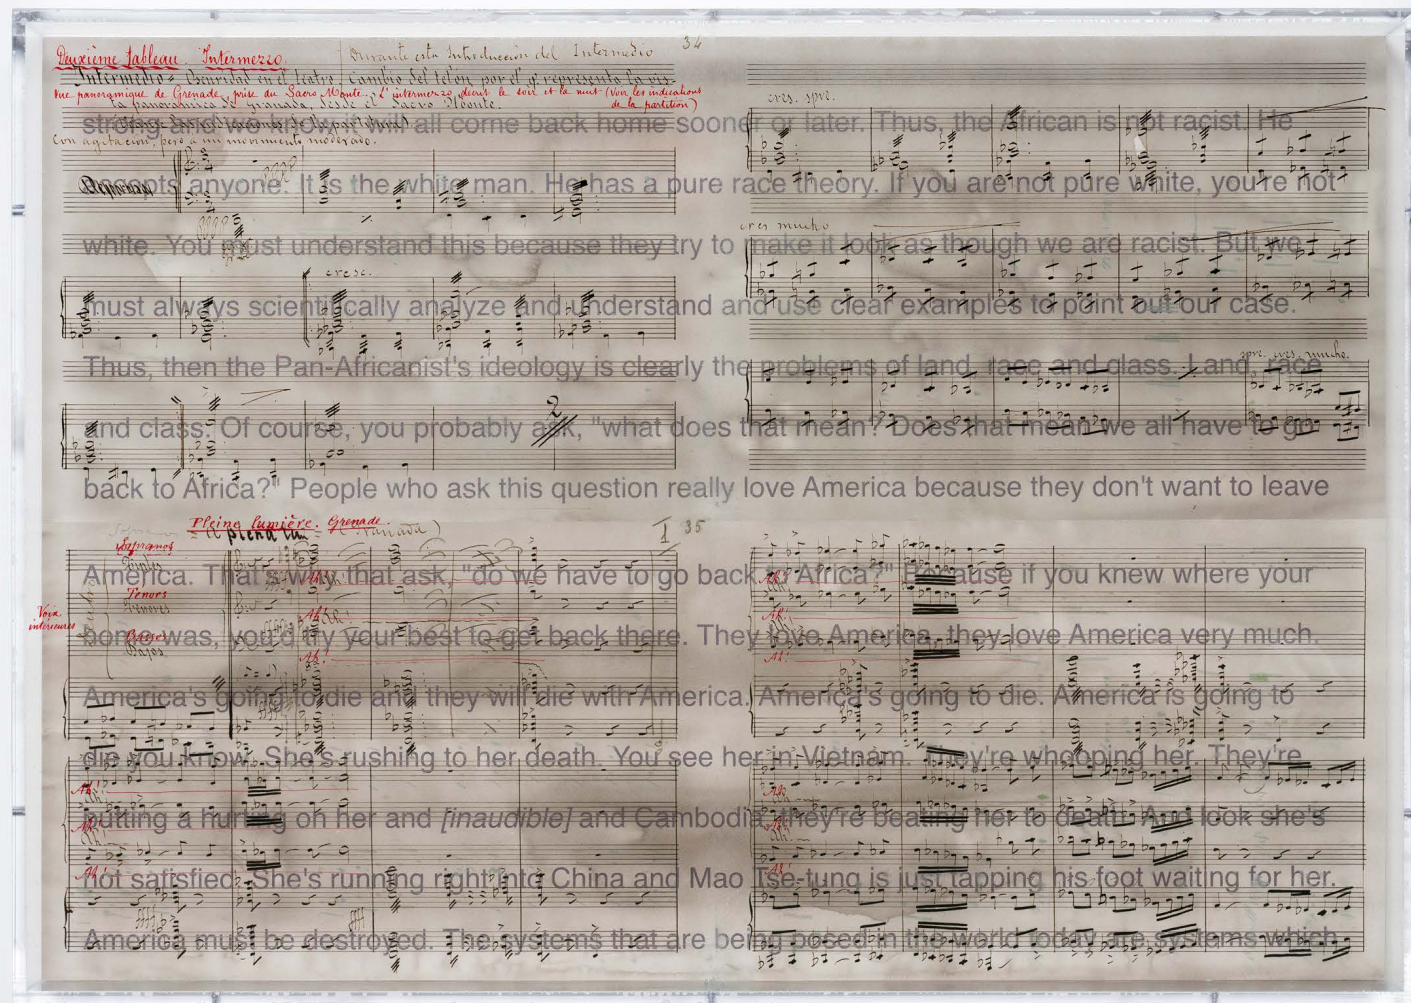 34
Deuxième tableau. Intermezzo.
Durante esta Introducción del Intermedio
Intermedio = Oscuridad en el teatro. Cambio del telón por el q. representa la vis-
vue panoramique de Grenade, prise du Sacro Monte. L'intermezzo décrit le soir et la nuit (voir les indications
de la partition)
ta panorámica de Granada, desde el Sacro Monte.
con agitación, pero a un movimiento moderado.
cres. spre.
strong and we know it will all come back home sooner or later. Thus, the African is not racist. He
accepts anyone. It is the white man. He has a pure race theory. If you are not pure white, you're not
cres mucho
white. You must understand this because they try to make it look as though we are racist. But we
cresc.
must always scientifically analyze and understand and use clear examples to point out our case.
spre. cres. mucho.
Thus, then the Pan-Africanist's ideology is clearly the problems of land, race and class. Land, race
2
and class. Of course, you probably ask, "what does that mean? Does that mean we all have to go
back to Africa?" People who ask this question really love America because they don't want to leave
Pleine lumière. Grenade.
Granada)
1 35
Sopranos
Tiples
America. That's why that ask, "do we have to go back to Africa?" Because if you knew where your
Ah!
Ah!
Tenors
Tenores
Voix
intérieures
Ah!
Ah!
Basses
Bajos
home was, you'd try your best to get back there. They love America, they love America very much.
Ah!
Ah!
America's going to die and they will die with America. America's going to die. America is going to
die you know. She's rushing to her death. You see her in Vietnam. They're whooping her. They're
Ah!
Ah!
putting a hurting on her and [inaudible] and Cambodia, they're beating her to death. And look she's
Ah!
Ah!
not satisfied. She's running right into China and Mao Tse-tung is just tapping his foot waiting for her.
Ah!
Ah!
America must be destroyed. The systems that are being posed in the world today are systems which